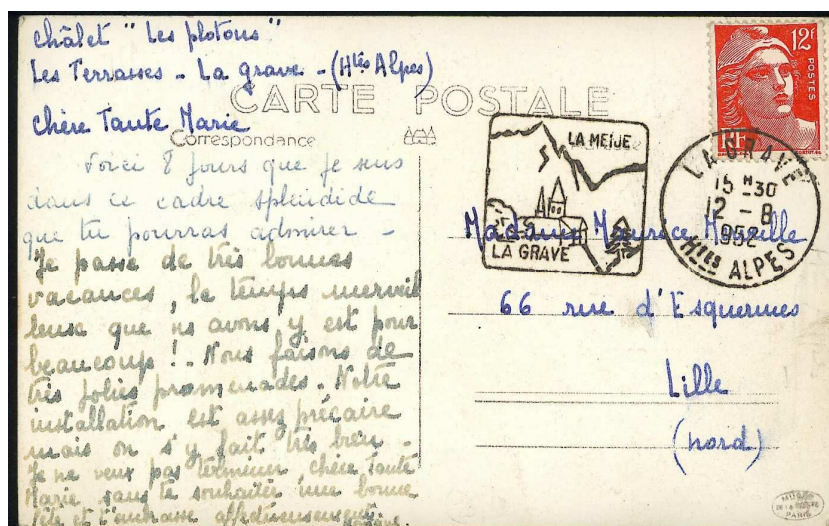 châlet "Les plotons"
Les Terrasses - La grave - (Htes Alpes)
CARTE POSTALE
chère Tante Marie
Correspondance
Voici 8 jours que je suis
dans ce cadre splendide
que tu pourras admirer -
Je passe de très bonnes
vacances, le temps merveil
leux que ns avons y est pour
beaucoup !.. Nous faisons de
très jolies promenades. Notre
installation est assez précaire
mais on s'y fait très bien -
Je ne veux pas terminer chère Tante
Marie sans te souhaiter une bonne
fête et t'embrasse affectueusement.
12f
POSTES
RF
LA MEIJE
LA GRAVE
LA GRAVE
15 H 30
12 - 8
1952
Htes ALPES
Madame Maurice
66 rue d'Esquermes
Lille
(nord)
PARIS